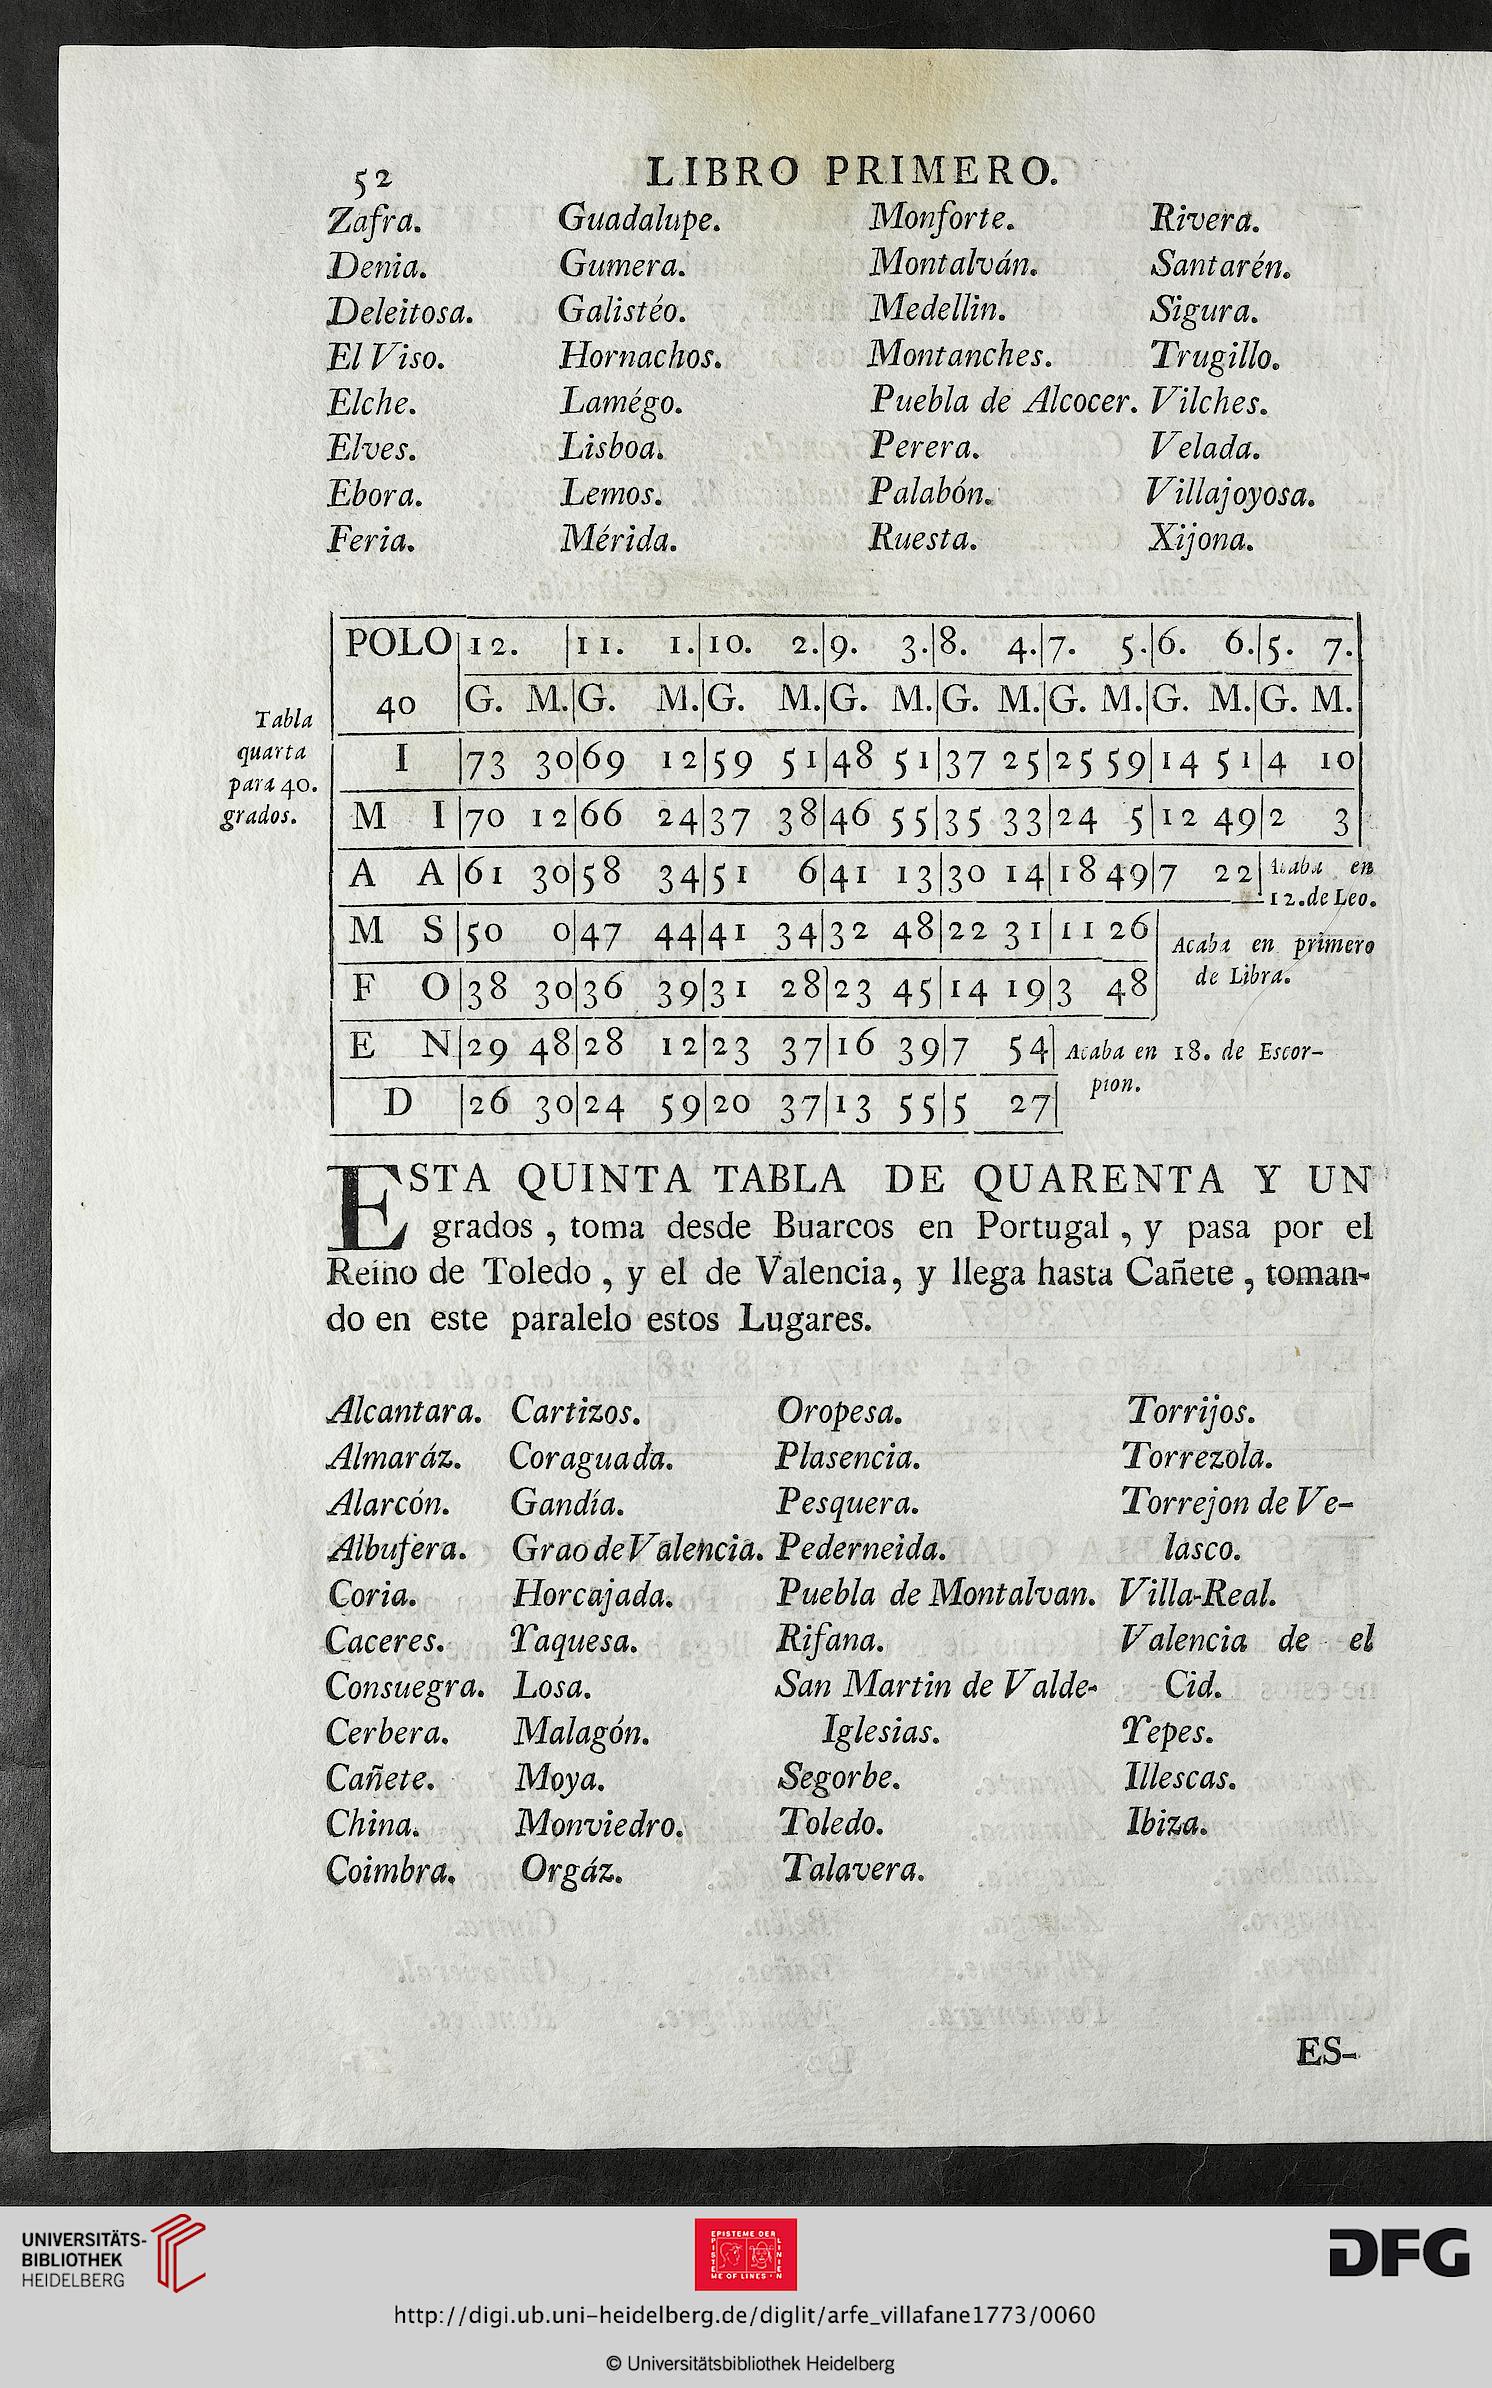 52 LIBRO PRIMERO.
Zafra. Guadalupe. Monforte. Rivera.
Denia. Gumera. Montalván. Santarén.
Deleitosa. Galistéo. Medellin. Sigura.
El Viso. Hornachos. Montanches. Trugillo.
Elche. Lamégo. Puebla de Alcocer. Vilches.
Elves. Lisboa. Perera. Velada.
Ebora. Lemos. Palabón. Villajoyosa.
Feria. Mérida. Ruesta. Xijona.
Tabla
quarta
para 40.
grados.
POLO 12. 11. 1. 10. 2. 9. 3. 8. 4. 7. 5. 6. 6. 5. 7.
40 G. M. G. M. G. M. G. M. G. M. G. M. G. M. G. M.
I 73 30 69 12 59 51 48 51 37 25 25 59 14 51 4 10
M I 70 12 66 24 37 38 46 55 35 33 24 5 12 49 2 3
A A 61 30 58 34 51 6 41 13 30 14 18 49 7 22 Acaba en
12. de Leo.
M S 50 0 47 44 41 34 32 48 22 31 11 26 Acaba en primero
de Libra.
F O 38 30 36 39 31 28 23 45 14 19 3 48
E N 29 48 28 12 23 37 16 39 7 54 Acaba en 18. de Escor-
pion.
D 26 30 24 59 20 37 13 55 5 27
ESTA QUINTA TABLA DE QUARENTA Y UN
grados, toma desde Buarcos en Portugal, y pasa por el
Reino de Toledo, y el de Valencia, y llega hasta Cañete, toman-
do en este paralelo estos Lugares.
Alcantara. Cartizos. Oropesa. Torrijos.
Almaráz. Coraguada. Plasencia. Torrezola.
Alarcón. Gandía. Pesquera. Torrejon de Ve-
Albufera. Grao de Valencia. Pederneida. lasco.
Coria. Horcajada. Puebla de Montalvan. Villa-Real.
Caceres. Yaquesa. Rifana. Valencia de el
Consuegra. Losa. San Martin de Valde- Cid.
Cerbera. Malagón. Iglesias. Yepes.
Cañete. Moya. Segorbe. Illescas.
China. Monviedro. Toledo. Ibiza.
Coimbra. Orgáz. Talavera.
ES-
UNIVERSITÄTS-
BIBLIOTHEK
HEIDELBERG
EPISTEME DER LINIEN
EPISTEME OF LINES
DFG
http://digi.ub.uni-heidelberg.de/diglit/arfe_villafane1773/0060
© Universitätsbibliothek Heidelberg